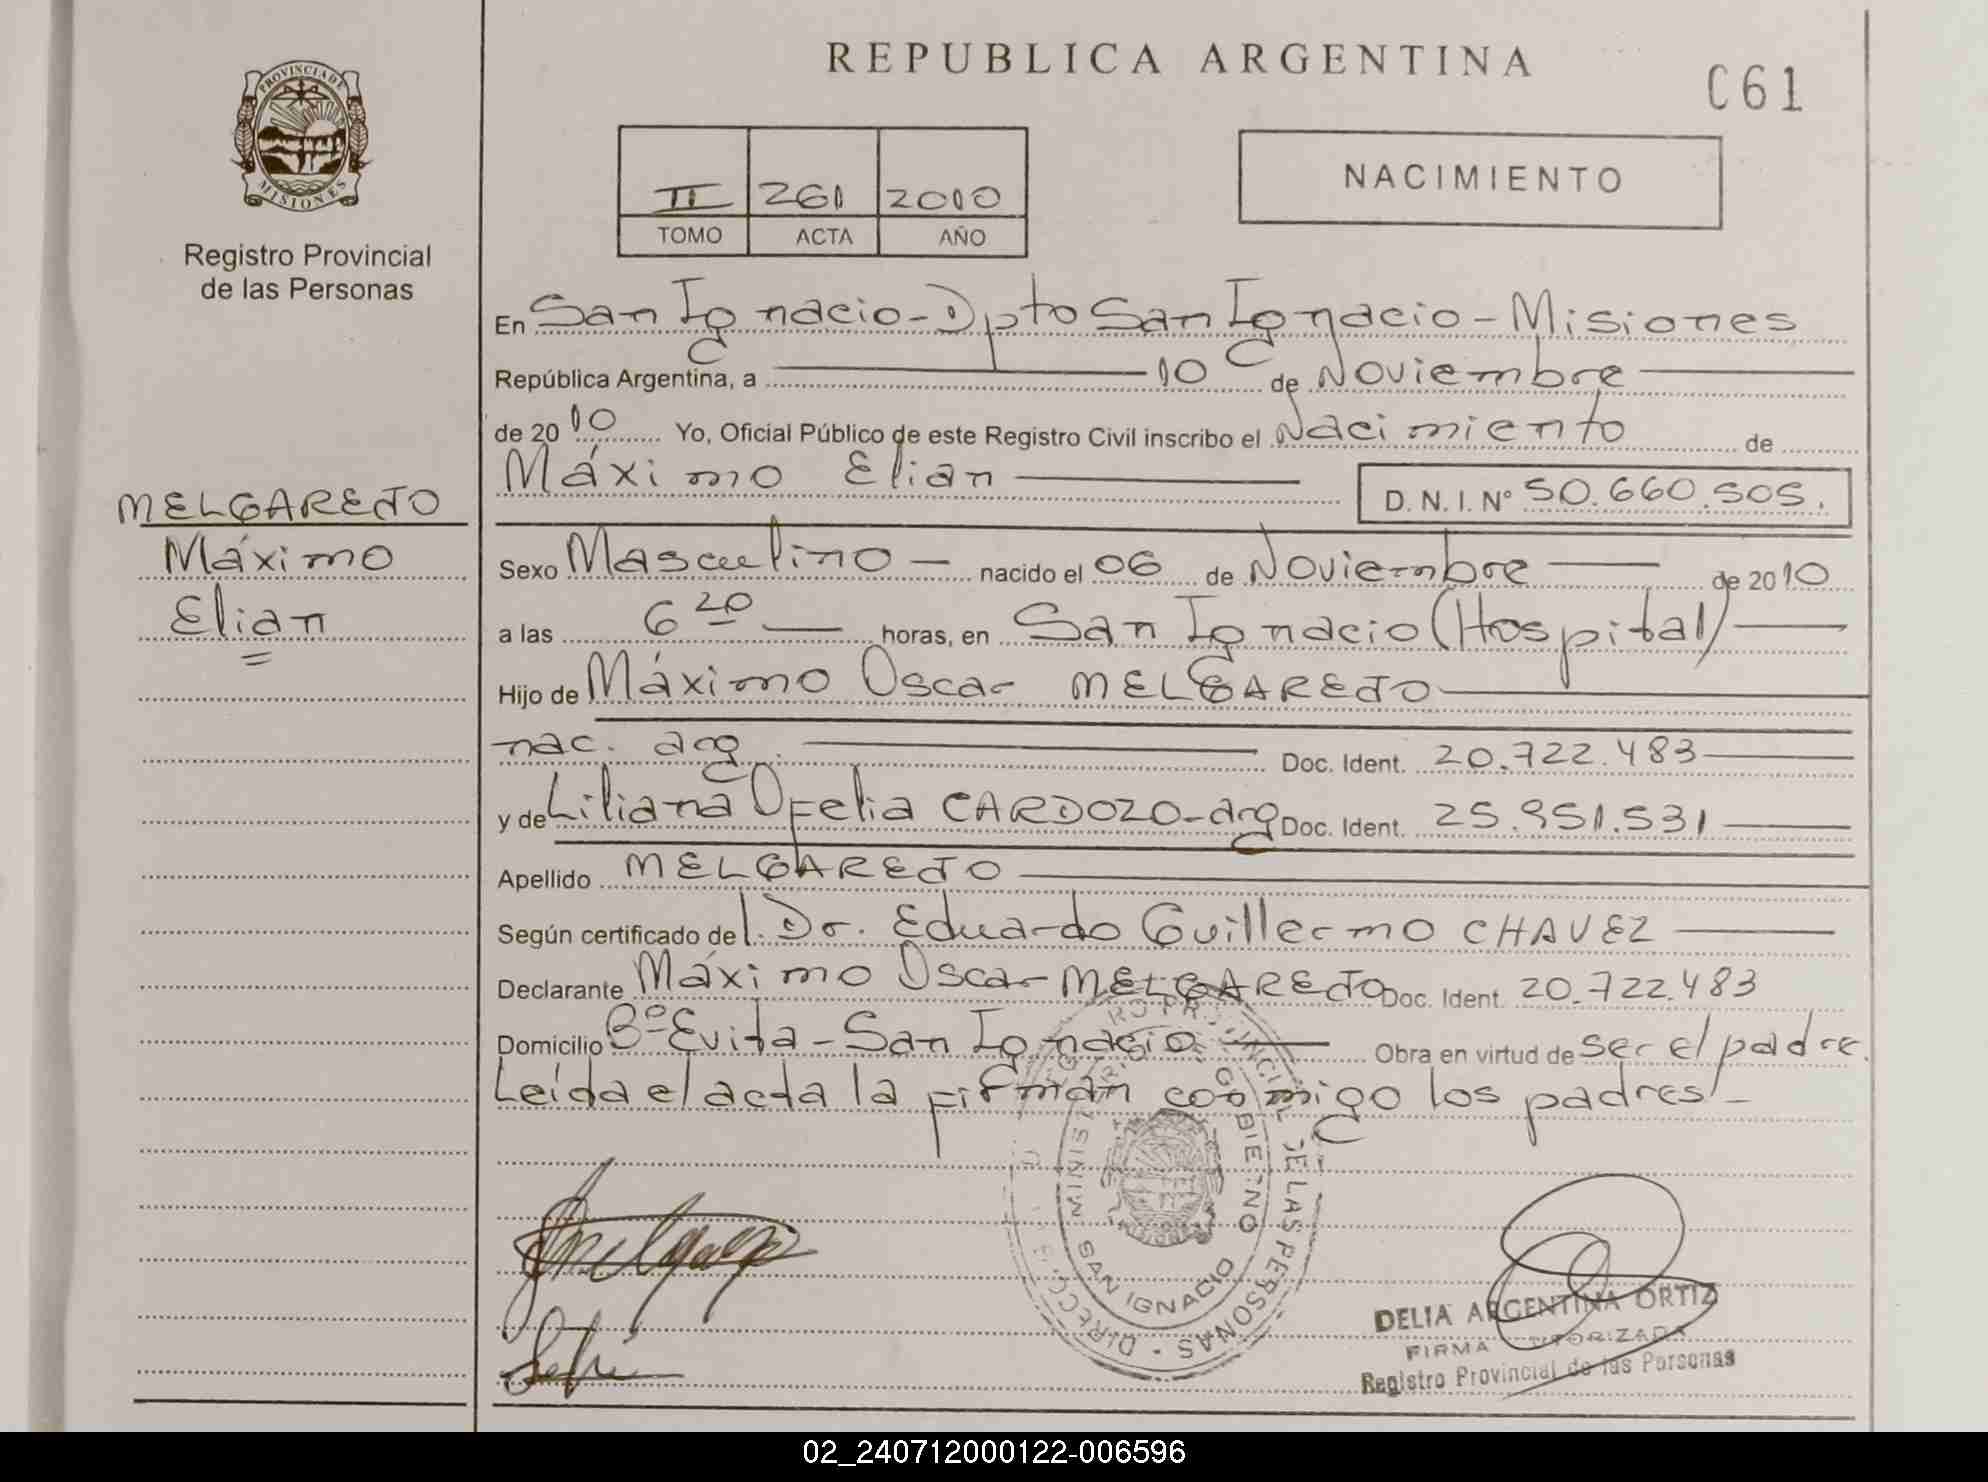 REPUBLICA ARGENTINA
C61
PROVINCIA DE
MISIONES
Registro Provincial
de las Personas
II 261 2010
TOMO ACTA AÑO
NACIMIENTO
En San Ignacio - Dpto San Ignacio - Misiones
República Argentina, a 10 de Noviembre
de 2010 Yo, Oficial Público de este Registro Civil inscribo el Nacimiento de
Máximo Elian D. N. I. Nº 50.660.505.
MELGAREJO
Máximo
Elian
Sexo Masculino - nacido el 06 de Noviembre de 2010
a las 6 20 horas, en San Ignacio (Hospital)
Hijo de Máximo Oscar MELGAREJO
nac. arg. Doc. Ident. 20.722.483
y de Liliana Ofelia CARDOZO - arg Doc. Ident. 25.951.531
Apellido MELGAREJO
Según certificado del Dr. Eduardo Guillermo CHAVEZ
Declarante Máximo Oscar MELGAREJO Doc. Ident. 20.722.483
Domicilio Bº Evita - San Ignacio Obra en virtud de ser el padre.
Leída el acta la firman conmigo los padres -
MINIS GOBIERNO
SAN IGNACIO
DE LAS PERSONAS
DELIA ARGENTINA ORTIZ
FIRMA AUTORIZADA
Registro Provincial de las Personas
02_240712000122-006596